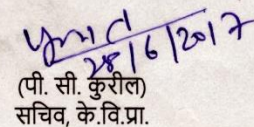 28/6/2017
(पी. सी. कुरील)
सचिव, के.वि.प्रा.